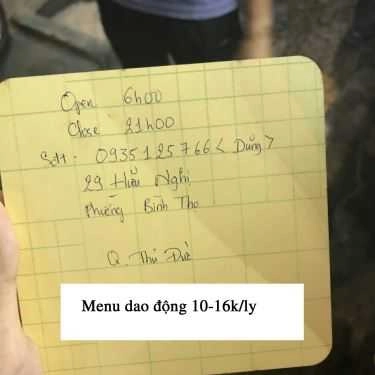 Open 6h00
Close 21h00
Sdt: 0935125766 < Dũng >
29 Hữu Nghị
Phường Bình Thọ
Q. Thủ Đức
Menu dao động 10-16k/ly